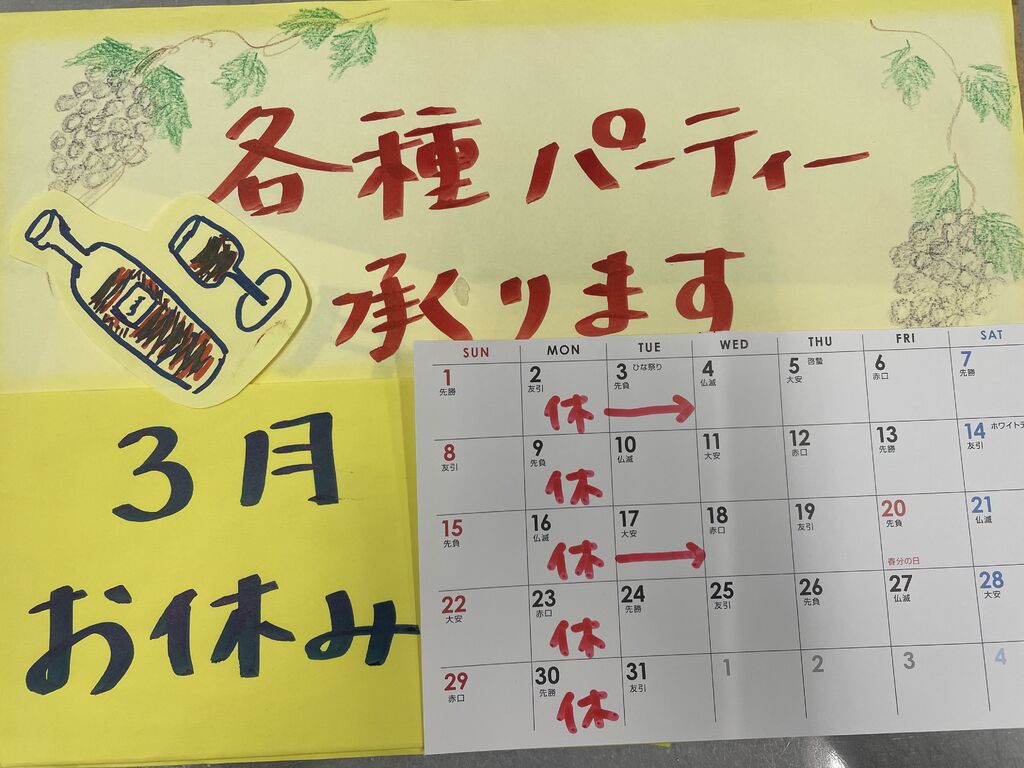 各種パーティー
承ります
3月
お休み
SUN MON TUE WED THU FRI SAT
1 2 3 ひな祭り 4 5 啓蟄 6 7
先勝 友引 先負 仏滅 大安 赤口 先勝
休
8 9 10 11 12 13 14 ホワイトデ
友引 先負 仏滅 大安 赤口 先勝 友引
休
15 16 17 18 19 20 21
先負 仏滅 大安 赤口 友引 先負 仏滅
休 春分の日
22 23 24 25 26 27 28
大安 赤口 先勝 友引 先負 仏滅 大安
休
29 30 31 1 2 3 4
赤口 先勝 友引
休